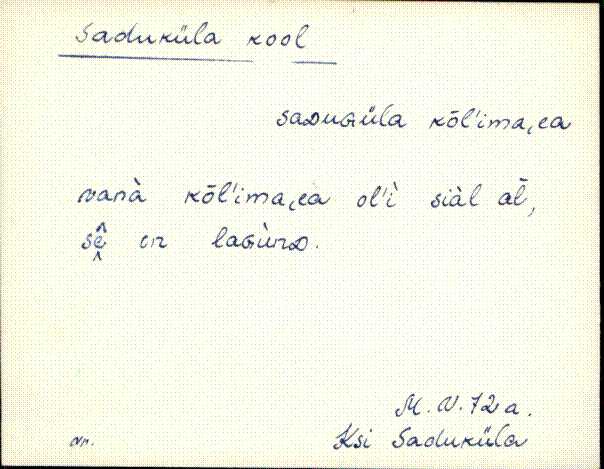 Saduküla kool
saDuGüla kōl'ima,ea
vanà kōl'ima,ea ol'ì siàl äÈ,
sê on laGùnD.
M. V. 72 a.
vn. Ksi Saduküla